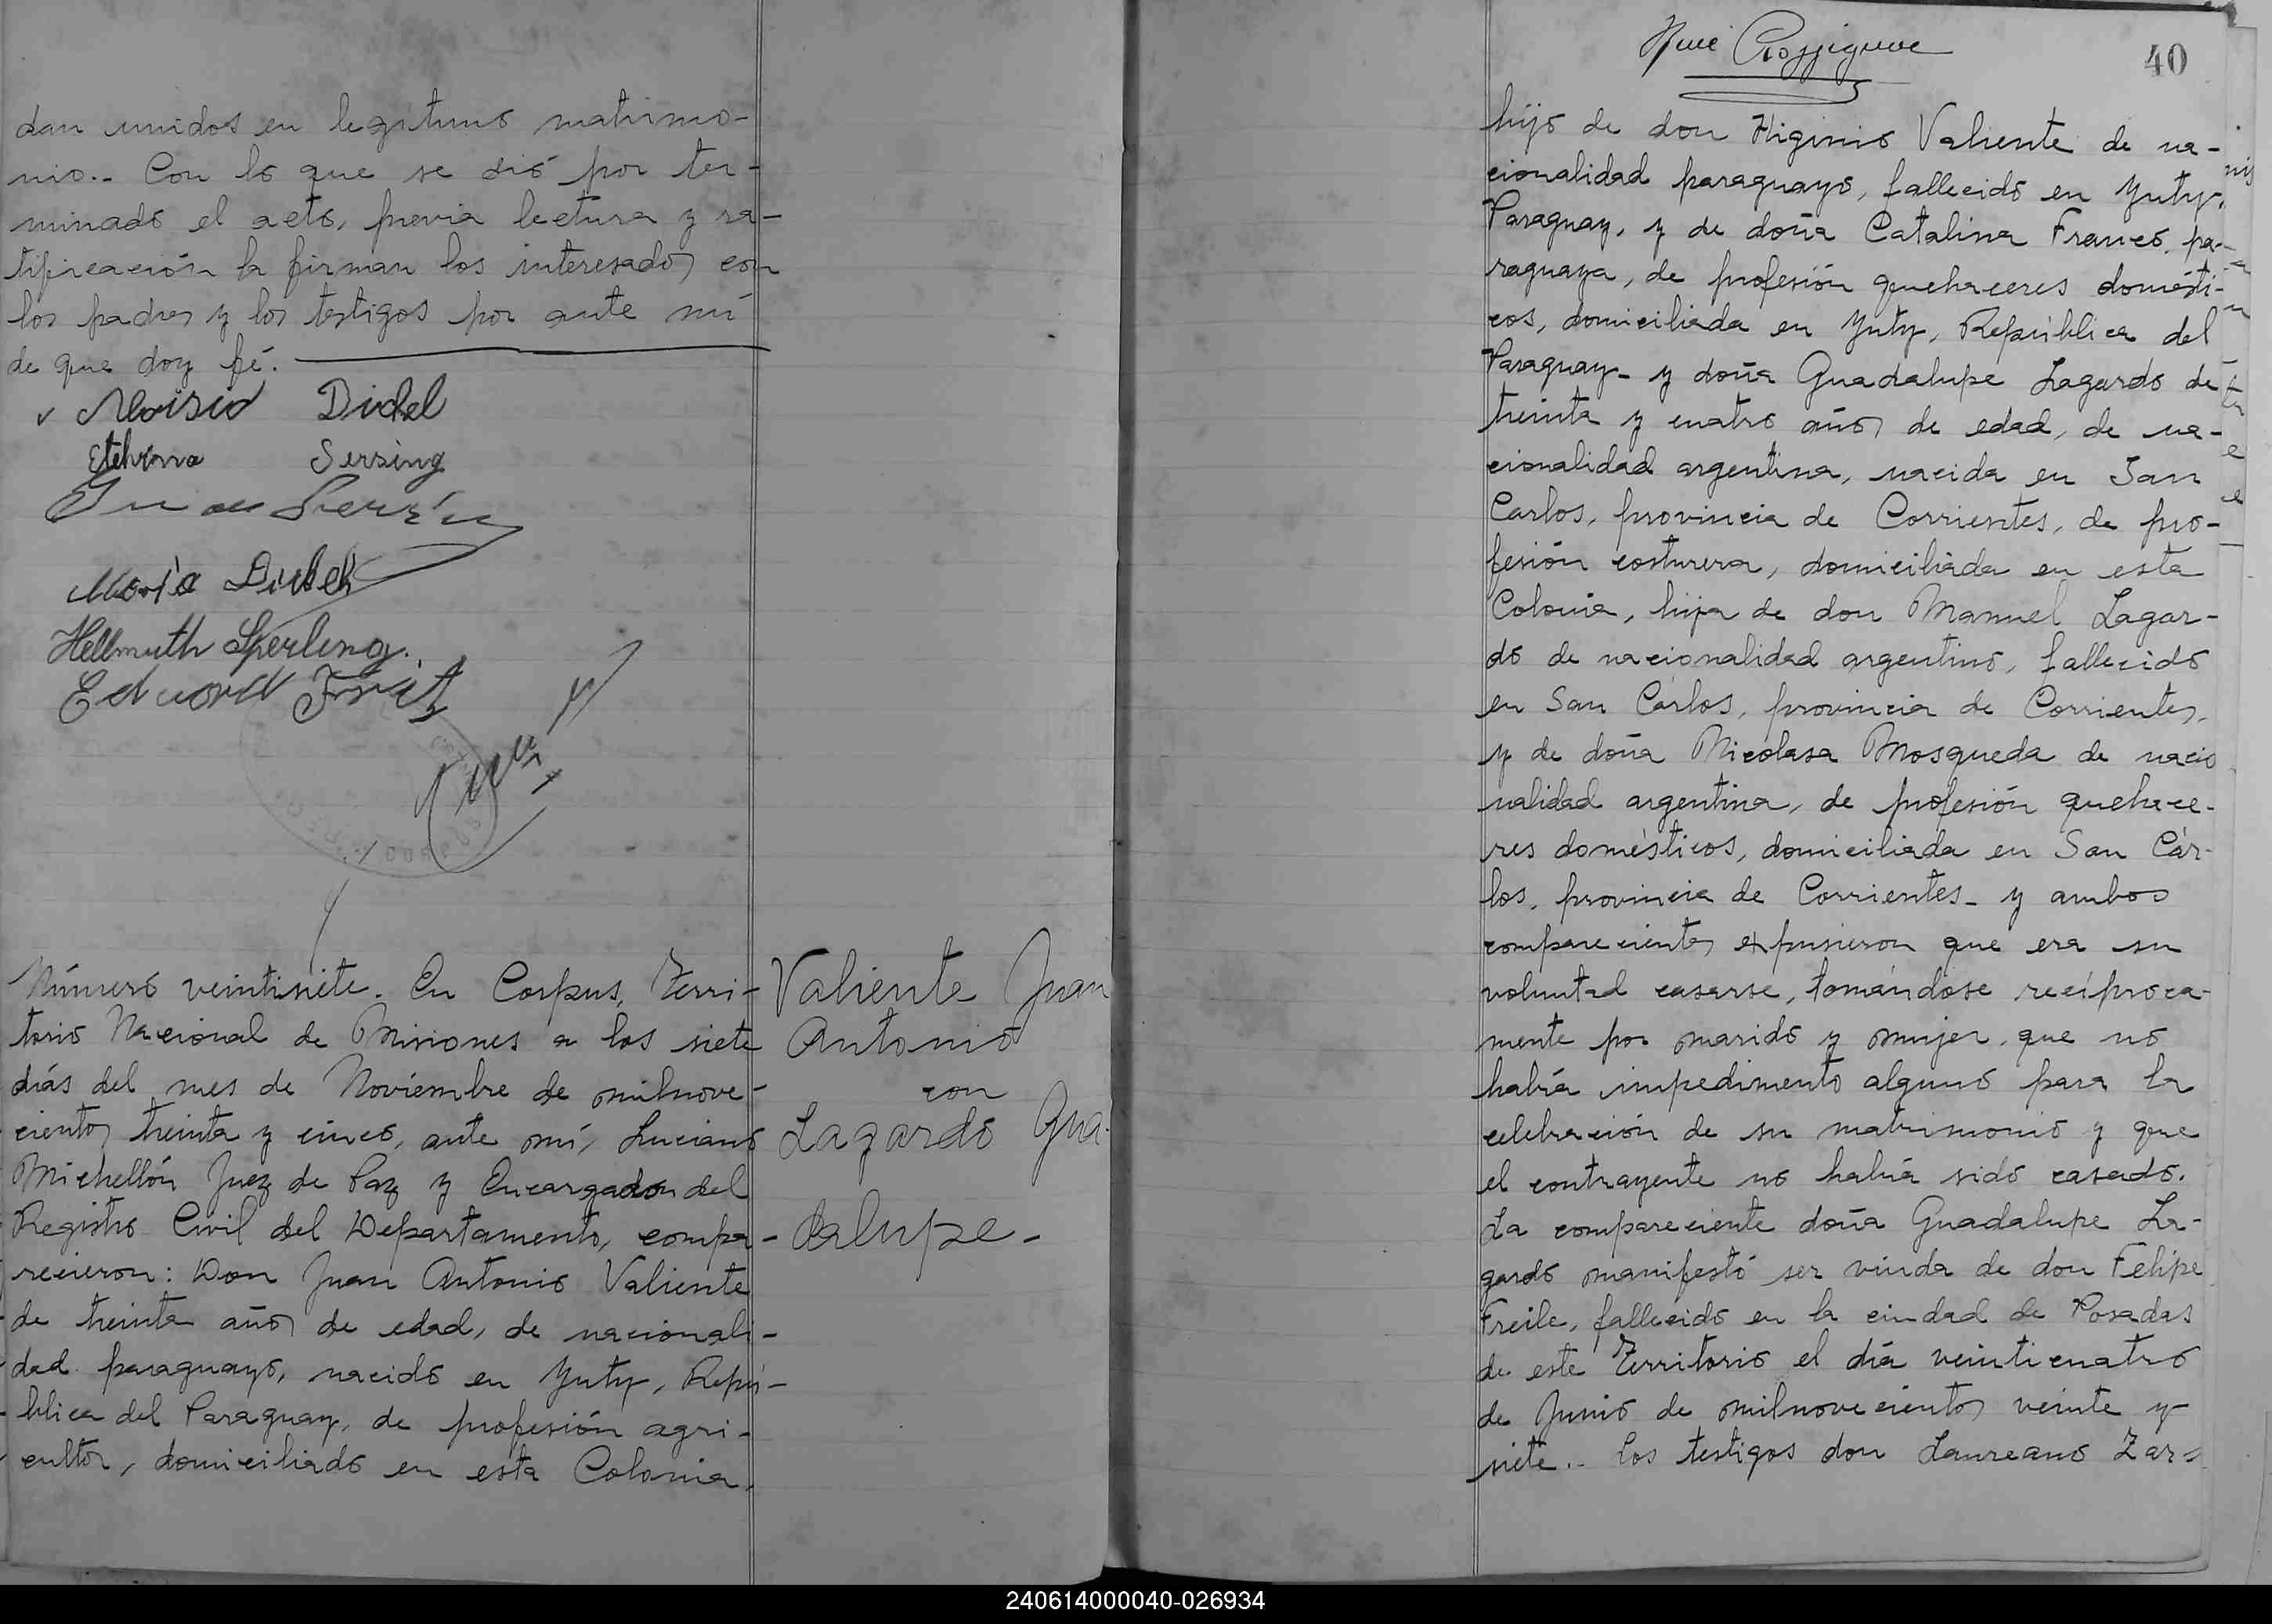 dan unidos en legitimo matrimo-
nio.- Con lo que se dió por ter-
minado el acto, previa lectura y ra-
tificación la firman los interesados con
los padres y los testigos por ante mi
de que doy fé.
Aloisio Didel
Sersing
María Didel
Hellmuth Sperling.
Número veintisiete. En Corpus, Terri-
torio Nacional de Misiones a los siete
diás del mes de Noviembre de milnove-
cientos treinta y cinco, ante mí, Luciano
Michellón Juez de Paz y Encargado del
Registro Civil del Departamento, compa-
recieron: Don Juan Antonio Valiente
de treinta años de edad, de nacionali-
dad paraguayo, nacido en Yuty, Repú-
blica del Paraguay, de profesión agri-
cultor, domiciliado en esta Colonia,
Valiente Juan
Antonio
con
Lagardo Gua-
dalupe.-
40
hijo de don Higinio Valiente de na-
cionalidad paraguayo, fallecido en Yuty,
Paraguay, y de doña Catalina Franco, pa-
raguaya, de profesión quehaceres domésti-
cos, domiciliada en Yuty, República del
Paraguay- y doña Guadalupe Lagardo de
treinta y cuatro años de edad, de na-
cionalidad argentina, nacida en San
Carlos, provincia de Corrientes, de pro-
fesión costurera, domiciliada en esta
Colonia, hija de don Manuel Lagar-
do de nacionalidad argentino, fallecido
en San Cárlos, provincia de Corrientes,
y de doña Nicolasa Mosqueda de nacio
nalidad argentina, de profesión quehace-
res domésticos, domiciliada en San Cár-
los, provincia de Corrientes- y ambos
comparecientes expusieron que era su
voluntad casarse, tomándose recíproca-
mente por marido y mujer, que no
había impedimento alguno para la
celebración de su matrimonio y que
el contrayente no había sido casado.
La compareciente doña Guadalupe La-
gardo manifestó ser viuda de don Felipe
Freile, fallecido en la ciudad de Posadas
de este Territorio el día veinticuatro
de Junio de milnovecientos veinte y
siete.- Los testigos don Laureano Zar-
240614000040-026934